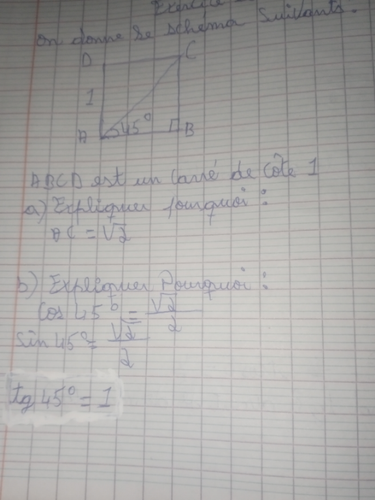 Exercice
on donne le schema suivants.
D C
1
A 45° B
ABCD est un carré de côte 1
a) Expliquer pourquoi :
AC = √2
b) Expliquer Pourquoi :
Cos 45° = √2/2
sin 45° = √2/2
tg 45° = 1